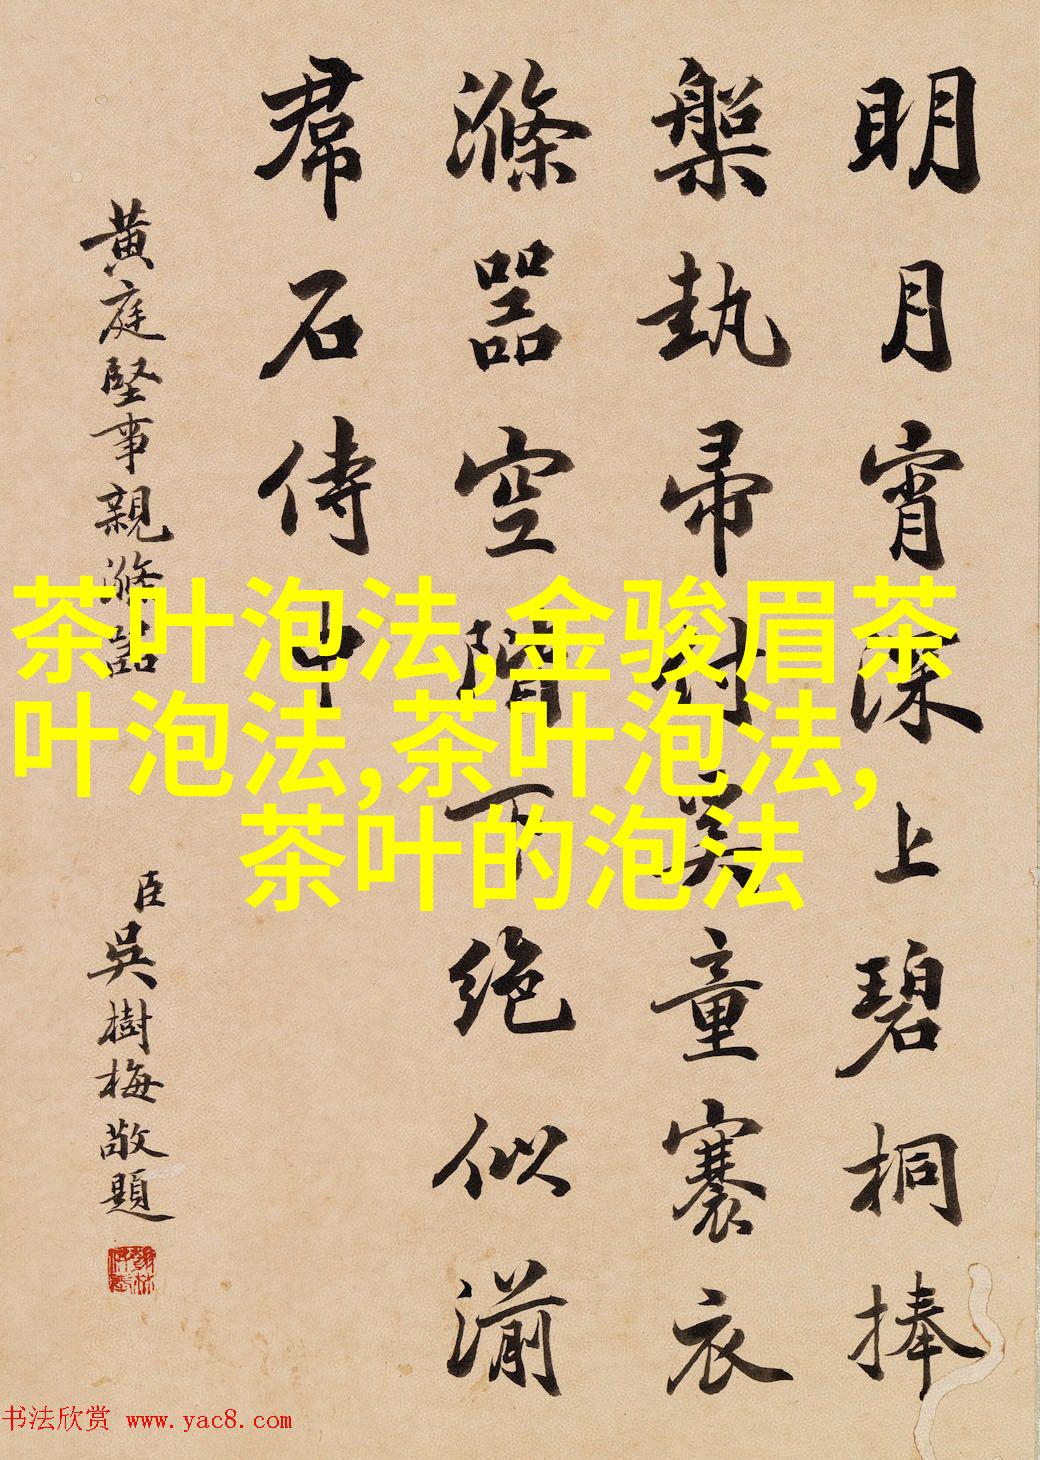 明月宵深上碧桐捧
槃執帚對吳童褰衣
滌器空階下絕似湔
帬石傍中
黃庭堅事親滌器
臣吳樹梅敬題
茶叶泡法,金骏眉茶
叶泡法,茶叶泡法,
茶叶的泡法
书法欣赏 www.yac8.com